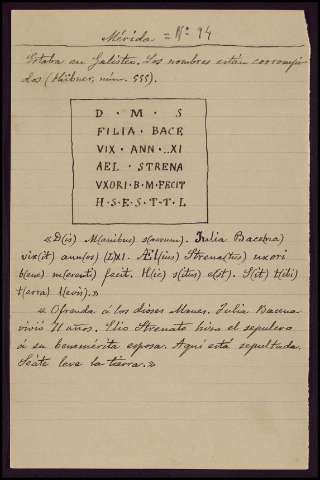 Mérida = Nº 94
Estaba en Galisteo. Los nombres están corrompi-
dos (Hübner, núm. 555).
D · M · S
FILIA · BACE
VIX · ANN · ..XI
AEL · STRENA
VXORI · B · M · FECIT
H · S · E · S · T · T · L
«D(is) M(anibus) s(acrum). Iulia Bace(na)
vix(it) ann(os) (L)XI. Æl(ius) Strena(tus) uxori
b(ene) m(erenti) fecit. H(ic) s(itus) e(st). S(it) t(ibi)
t(erra) l(evis).»
«Ofrenda á los dioses Manes. Julia Bacena
vivió 71 años. Elio Strenato hizo el sepulcro
á su benemérita esposa. Aquí está sepultada.
Séate leve la tierra.»